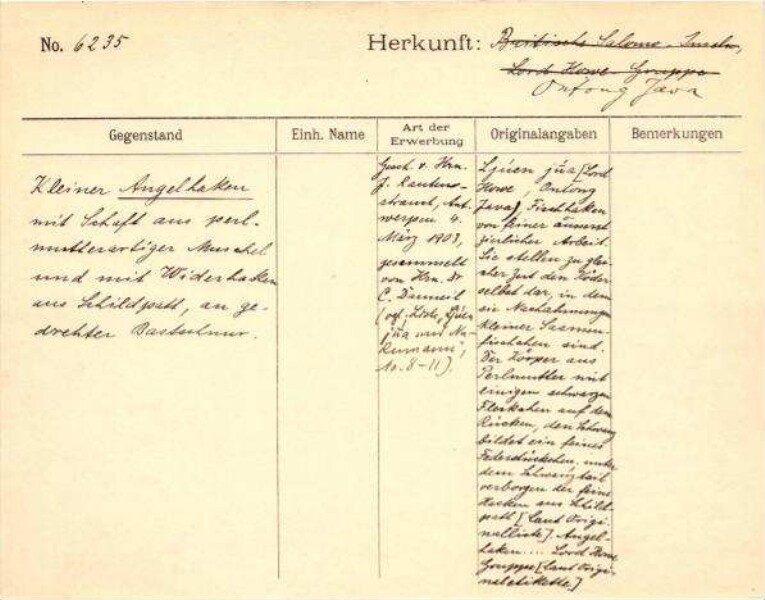 No. 6235
Herkunft: Britische Salomo-Inseln,
Lord Howe-Gruppe
Ontong Java
Gegenstand
Einh. Name
Art der
Erwerbung
Originalangaben
Bemerkungen
Kleiner Angelhaken
mit Schaft aus perl-
mutterartiger Muschel
und mit Widerhaken
aus Schildpatt, an ge-
drehter Bastschnur.
Gesch. v. Hrn.
J. Rauten-
strauch, Ant-
werpen 4.
März 1903,
gesammelt
von Hrn. Dr
C.
No. 8-11).
Ljúen júa [Lord
Howe, Ontong
Java] Fischhaken
von feiner äusserst
zierlicher Arbeit.
Sie stellen zu glei-
cher Zeit den Köder
selbst dar, in dem
sie Nachahmungen
kleiner
fischchen sind.
Der Körper aus
Perlmutter mit
einigen schwarzen
Fleckchen auf dem
Rücken, den Schwanz
bildet ein feines
Federstückchen, unter
dem Schwanzteil
verborgen der feine
Hacken aus Schild-
patt [laut Origi-
nalliste]. Angel-
haken.... Lord Howe
Gruppe [laut Origi-
naletikette.]